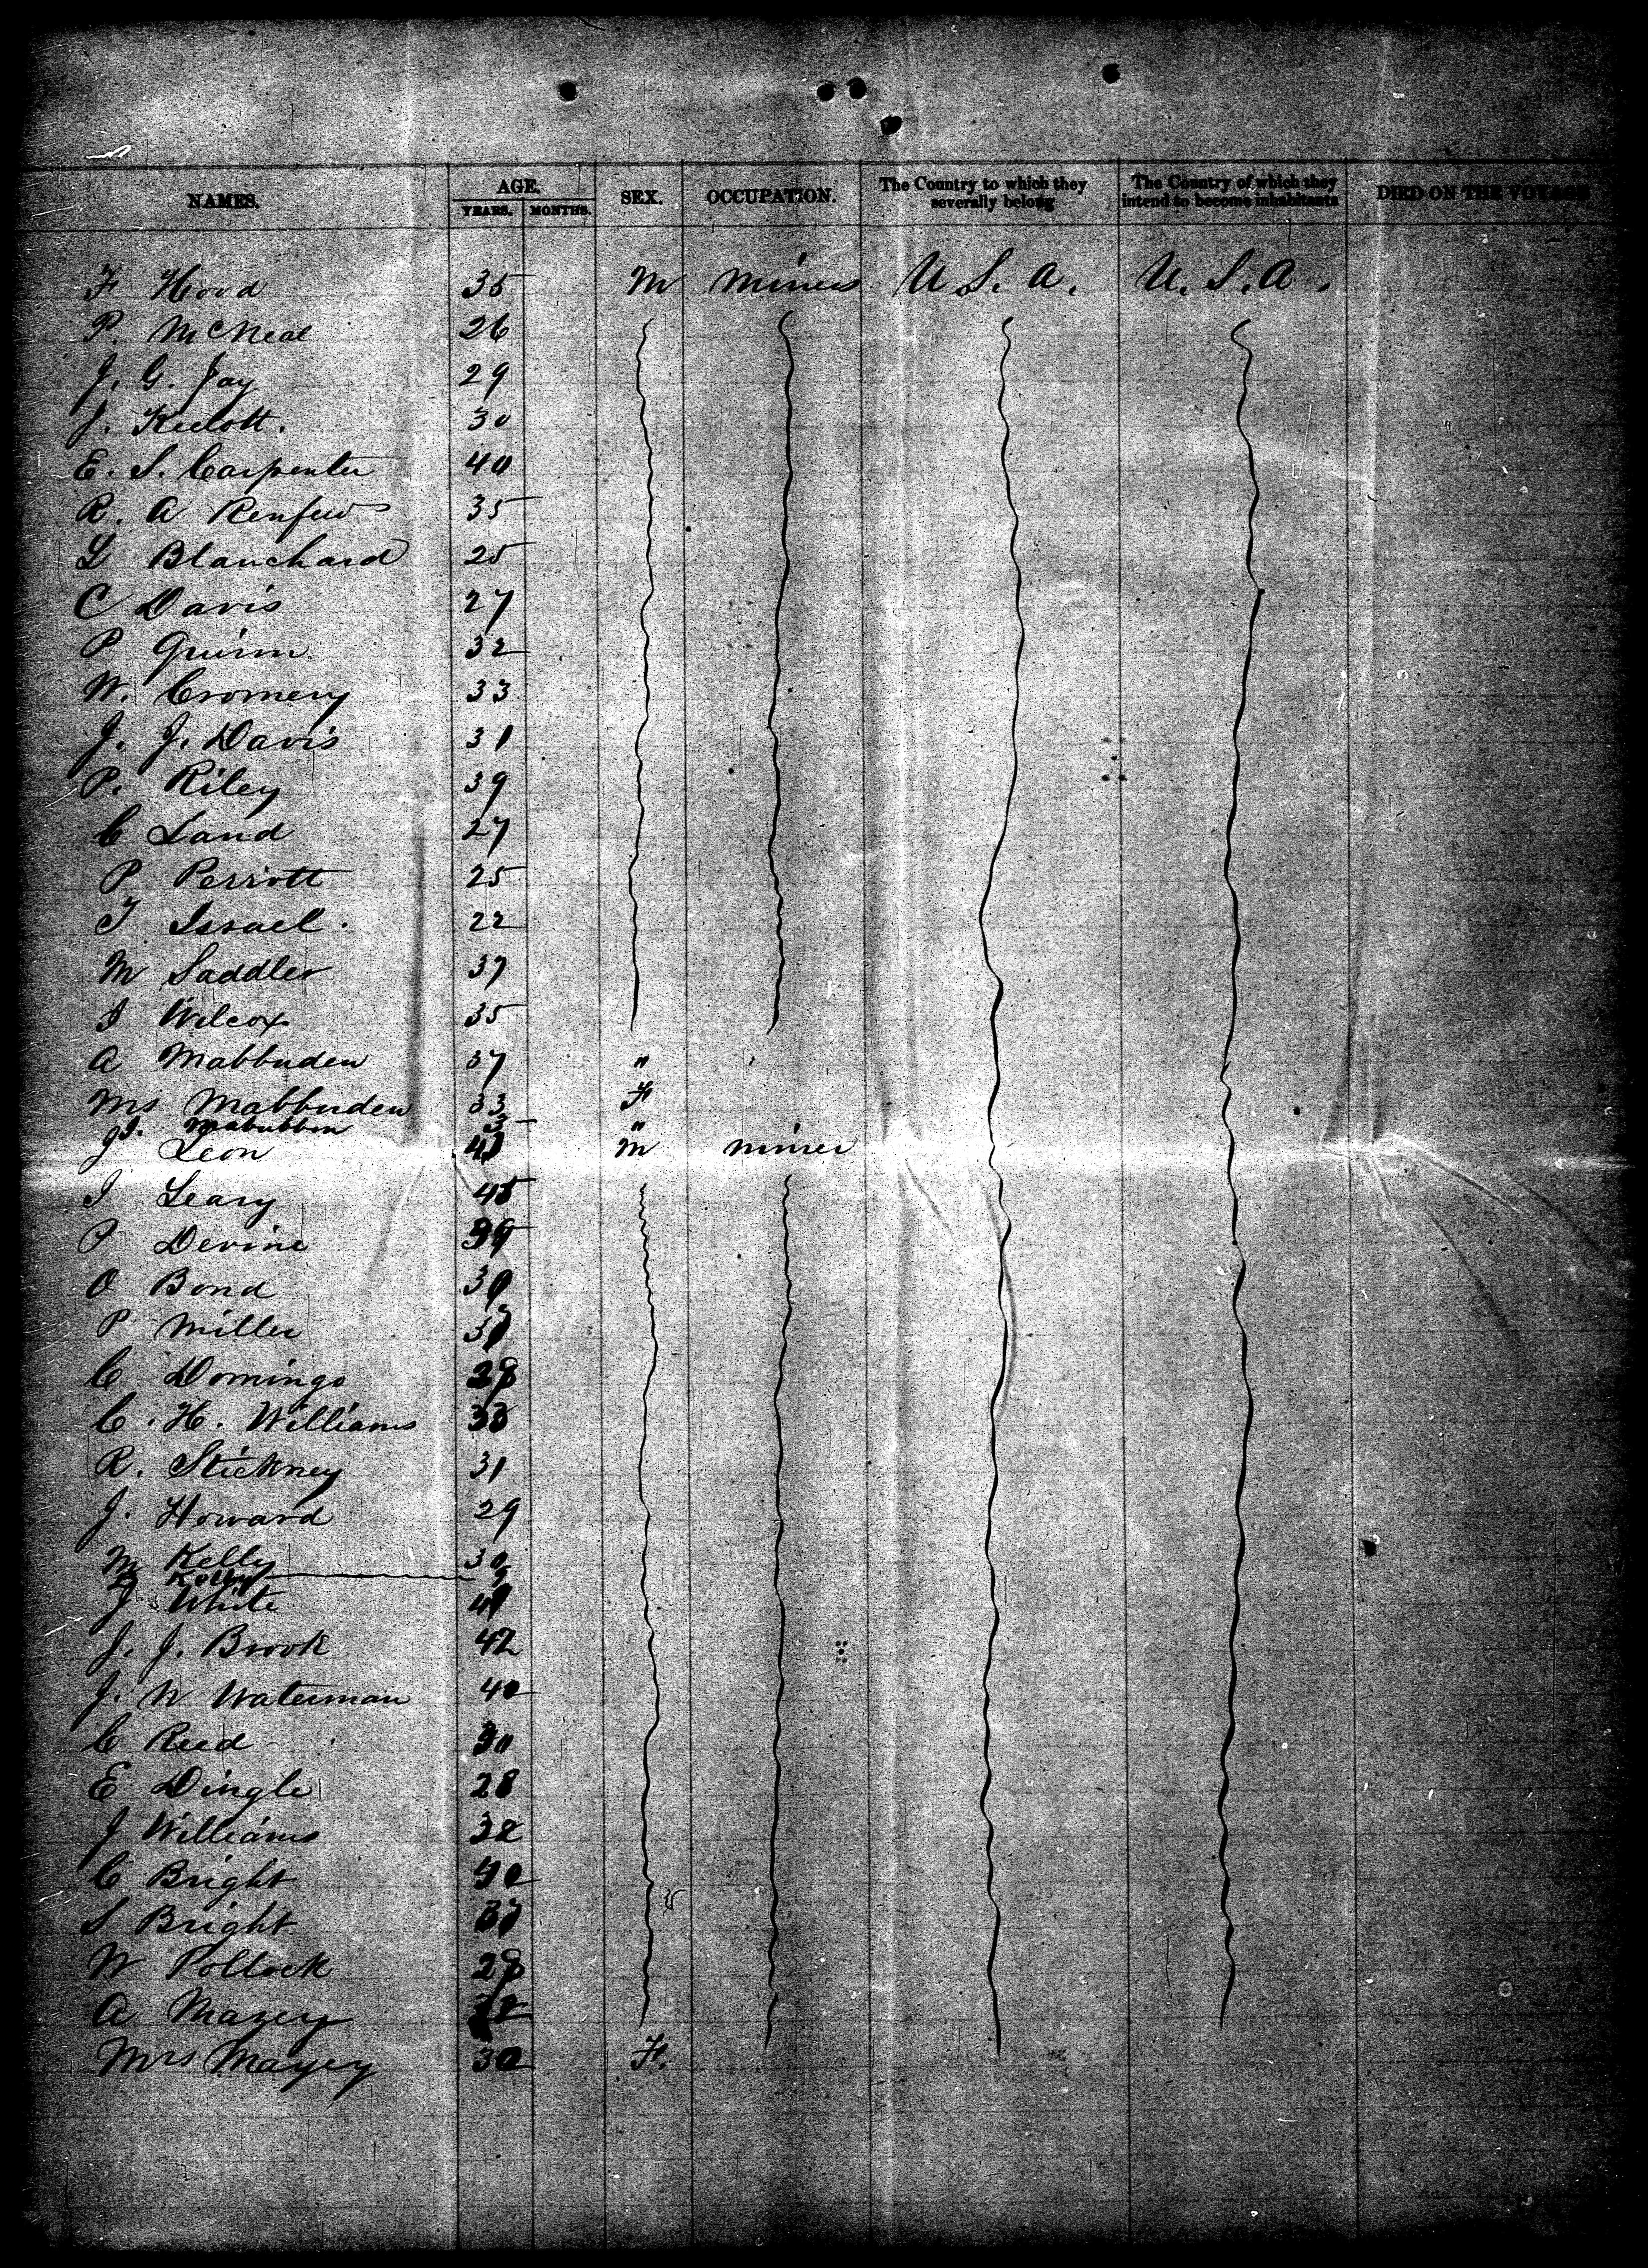 NAMES. AGE. SEX. OCCUPATION. The Country to which they severally belong The Country of which they intend to become inhabitants DIED ON THE VOYAGE
YEARS. MONTHS.
F Hood 35 M Miners U.S.A. U.S.A.
P. McNeal 26
J. G. Jay 29
J. 30
E. S. Carpenter 40
R. A Renfew 35
L Blanchard 25
C Davis 27
P Quinn 32
W. Cromeny 33
J. J. Davis 31
P. Riley 39
C Land 27
P Perrott 25
T Israel. 22
M Saddler 37
I Wilcox 35
A Mabbuden 37 "
Mrs Mabbuden 33 F
"
J Leon M miner
I Leary 45
P Devine
O Bond
P Miller
C Domingo 28
C. H. Williams 33
R. Stickney 31
J. Howard 29
M Kelly 30
Kelly
J White
J. J. Brook 42
J. W Waterman 40
C Reed 30
E Dingle 28
J Williams 32
C Bright 40
S Bright 37
W Pollock 28
A Mazey
Mrs Mazey 30 F.